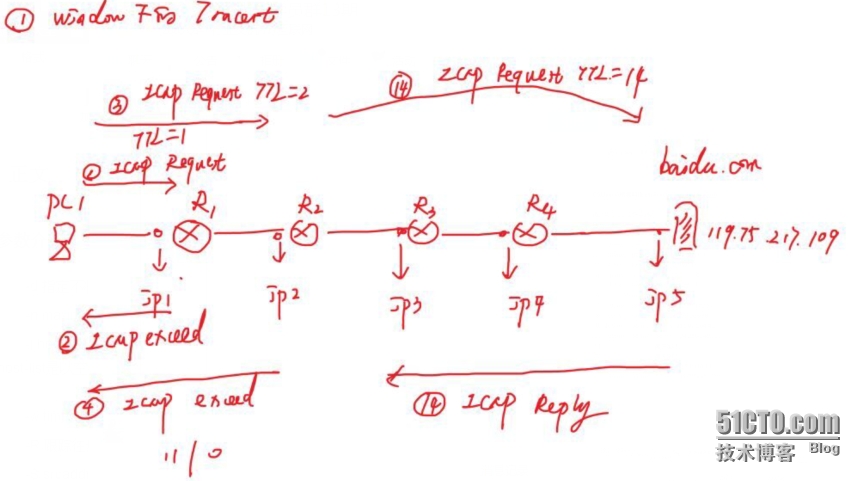 ① window 7的 Tracert
③ Icmp Request TTL=2
⑭ Icmp Request TTL=14
TTL=1
① Icmp Request
baidu.com
PC1
R1
R2
R3
R4
119.75.217.109
ip1
ip2
ip3
ip4
ip5
② Icmp exceed
④ Icmp exceed
⑭ Icmp Reply
11/0
51CTO.com
技术博客 Blog